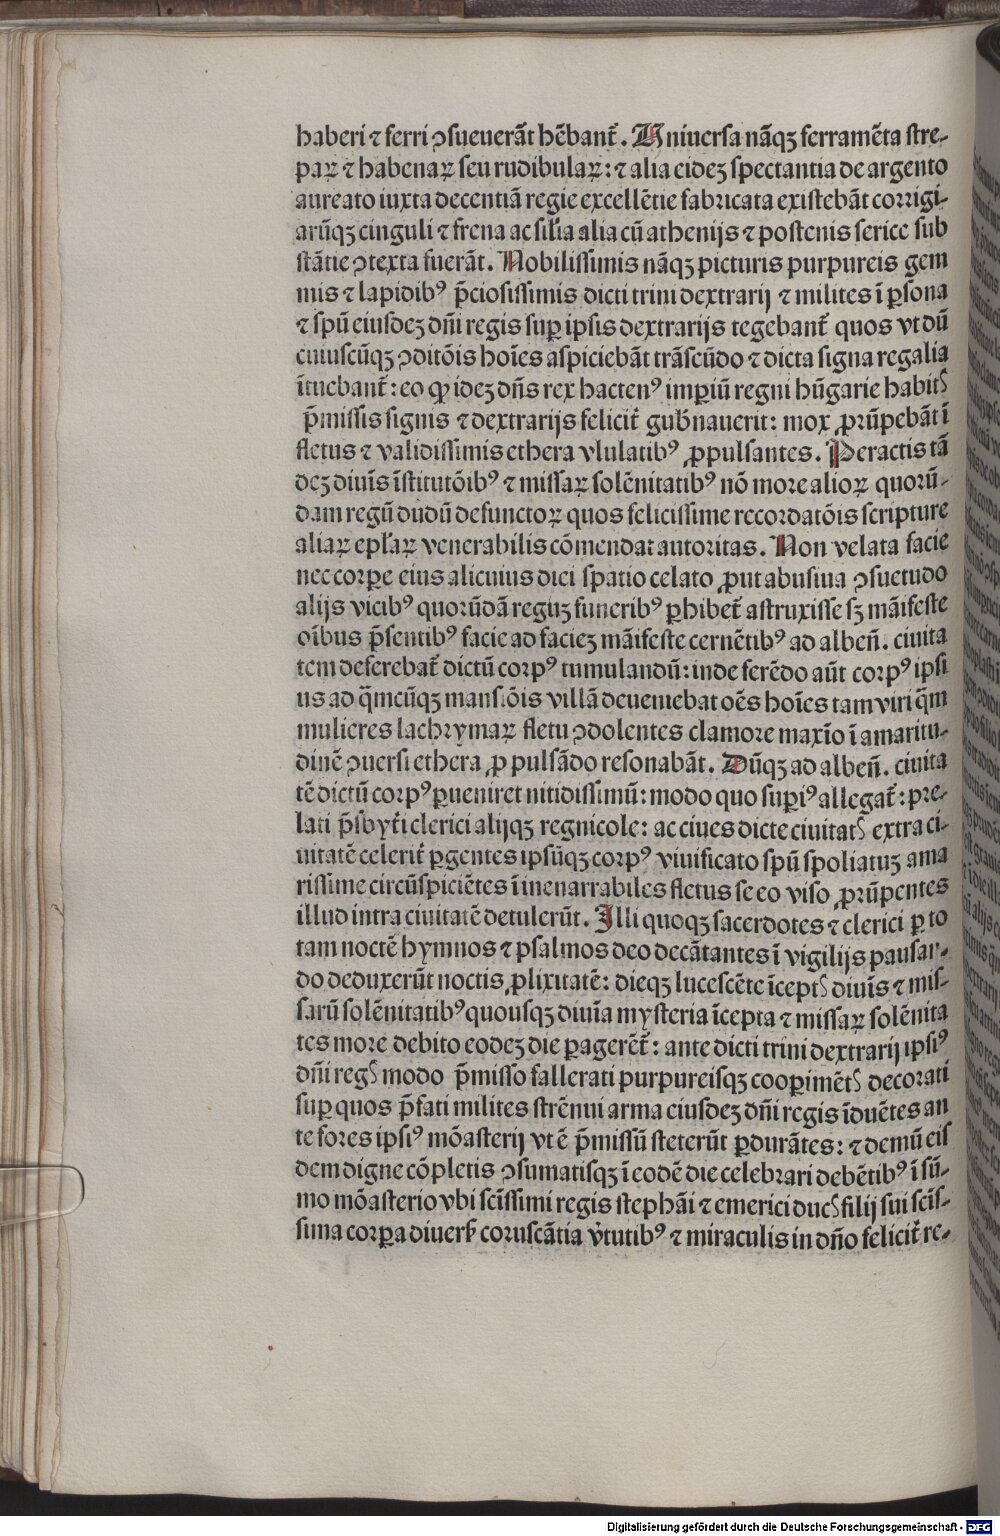 haberi ⁊ ferri ↄsueuerãt hẽbant̃. Uniuersa nãqꝫ ferramẽta stre-
paꝝ ⁊ habenaꝝ seu rudibulaꝝ: ⁊ alia eideꝫ spectantia de argento
aureato iuxta decentiã regie excellẽtie fabricata existebãt corrigi-
arũqꝫ cinguli ⁊ frena ac silĩa alia cũ athenijs ⁊ postenis serice sub
stãtie ↄtexta fuerãt. Nobilissimis nãqꝫ picturis purpureis gem
mis ⁊ lapidibꝰ p̃ciosissimis dicti trini dextrarij ⁊ milites ĩ ꝑsona
⁊ spũ eiusdeꝫ dñi regis suꝑ ipsis dextrarijs tegebant̃ quos vt dũ
cuiuscũqꝫ ↄditõis hoĩes aspiciebãt trãseũdo ⁊ dicta signa regalia
ĩtuebant̃: eo ꝙ ideꝫ dñs rex hactenꝰ imꝑiũ regni hũgarie habitꝭ
p̃missis signis ⁊ dextrarijs felicit̃ gub̃nauerit: mox ꝓrũpebãt ĩ
fletus ⁊ validissimis ethera vlulatibꝰ ꝓpulsantes. Peractis tã
deꝫ diuiñs ĩstitutõibꝰ ⁊ missaꝝ solẽnitatibꝰ nõ more alioꝝ quorũ-
dam regũ dudũ defunctoꝝ quos felicissime recordatõis scripture
aliaꝝ epl̃aꝝ venerabilis cõmendat autoritas. Non velata facie
nec corꝑe eius alicuius dici spatio celato ꝓut abusiua ↄsuetudo
alijs vicibꝰ quorũdã reguꝫ funeribꝰ ꝑhibet̃ astruxisse sꝫ mãifeste
oĩbus p̃sentibꝰ facie ad facieꝫ mãifeste cernẽtibꝰ ad albeñ. ciuita
tem deferebat̃ dictũ corpꝰ tumulandũ: inde ferẽdo aũt corpꝰ ipsi
us ad q̃mcũqꝫ mansiõis villã deueniebat oẽs hoĩes tam viri q̃m
mulieres lachrymaꝝ fletu ↄdolentes clamore maxĩo ĩ amaritu-
dinẽ ↄuersi ethera ꝓpulsãdo resonabãt. Dũqꝫ ad albeñ. ciuita
tẽ dictũ corpꝰ ꝑueniret nitidissimũ: modo quo suꝑiꝰ allegat̃: pre-
lati p̃sbyt̃i clerici alijqꝫ regnicole: ac ciues dicte ciuitatꝭ extra ci-
uitatẽ celerit̃ ꝑgentes ipsũqꝫ corpꝰ viuificato spũ spoliatuꝫ ama
rissime circũspiciẽtes ĩ inenarrabiles fletus se eo viso ꝓrũpentes
illud intra ciuitatẽ detulerũt. Illi quoqꝫ sacerdotes ⁊ clerici ꝑ to
tam noctẽ hymnos ⁊ psalmos deo decãtantes ĩ vigilijs pausan-
do deduxerũt noctis ꝓlixitatẽ: dieqꝫ lucescẽte ĩceptꝭ diuiñs ⁊ mis-
sarũ solẽnitatibꝰ quousqꝫ diuĩa mysteria ĩcepta ⁊ missaꝝ solẽnita
tes more debito eodeꝫ die ꝑagerẽt̃: ante dicti trini dextrarij ipsiꝰ
dñi regꝭ modo p̃misso fallerati purpureisqꝫ cooꝑimẽtꝭ decorati
suꝑ quos p̃fati milites strẽnui arma eiusdeꝫ dñi regis ĩduẽtes an
te fores ipsiꝰ mõasterij vt ẽ p̃missũ steterũt ꝑdurãtes: ⁊ demũ eis
dem digne cõpletis ↄsumatisqꝫ ĩ eodẽ die celebrari debẽtibꝰ ĩ sũ-
mo mõasterio vbi scĩssimi regis stephãi ⁊ emerici ducꝭ filij sui scĩs-
sima corꝑa diuers̃ coruscãtia v̾tutibꝰ ⁊ miraculis in dño felicit̃ re-
Digitalisierung gefördert durch die Deutsche Forschungsgemeinschaft - DFG